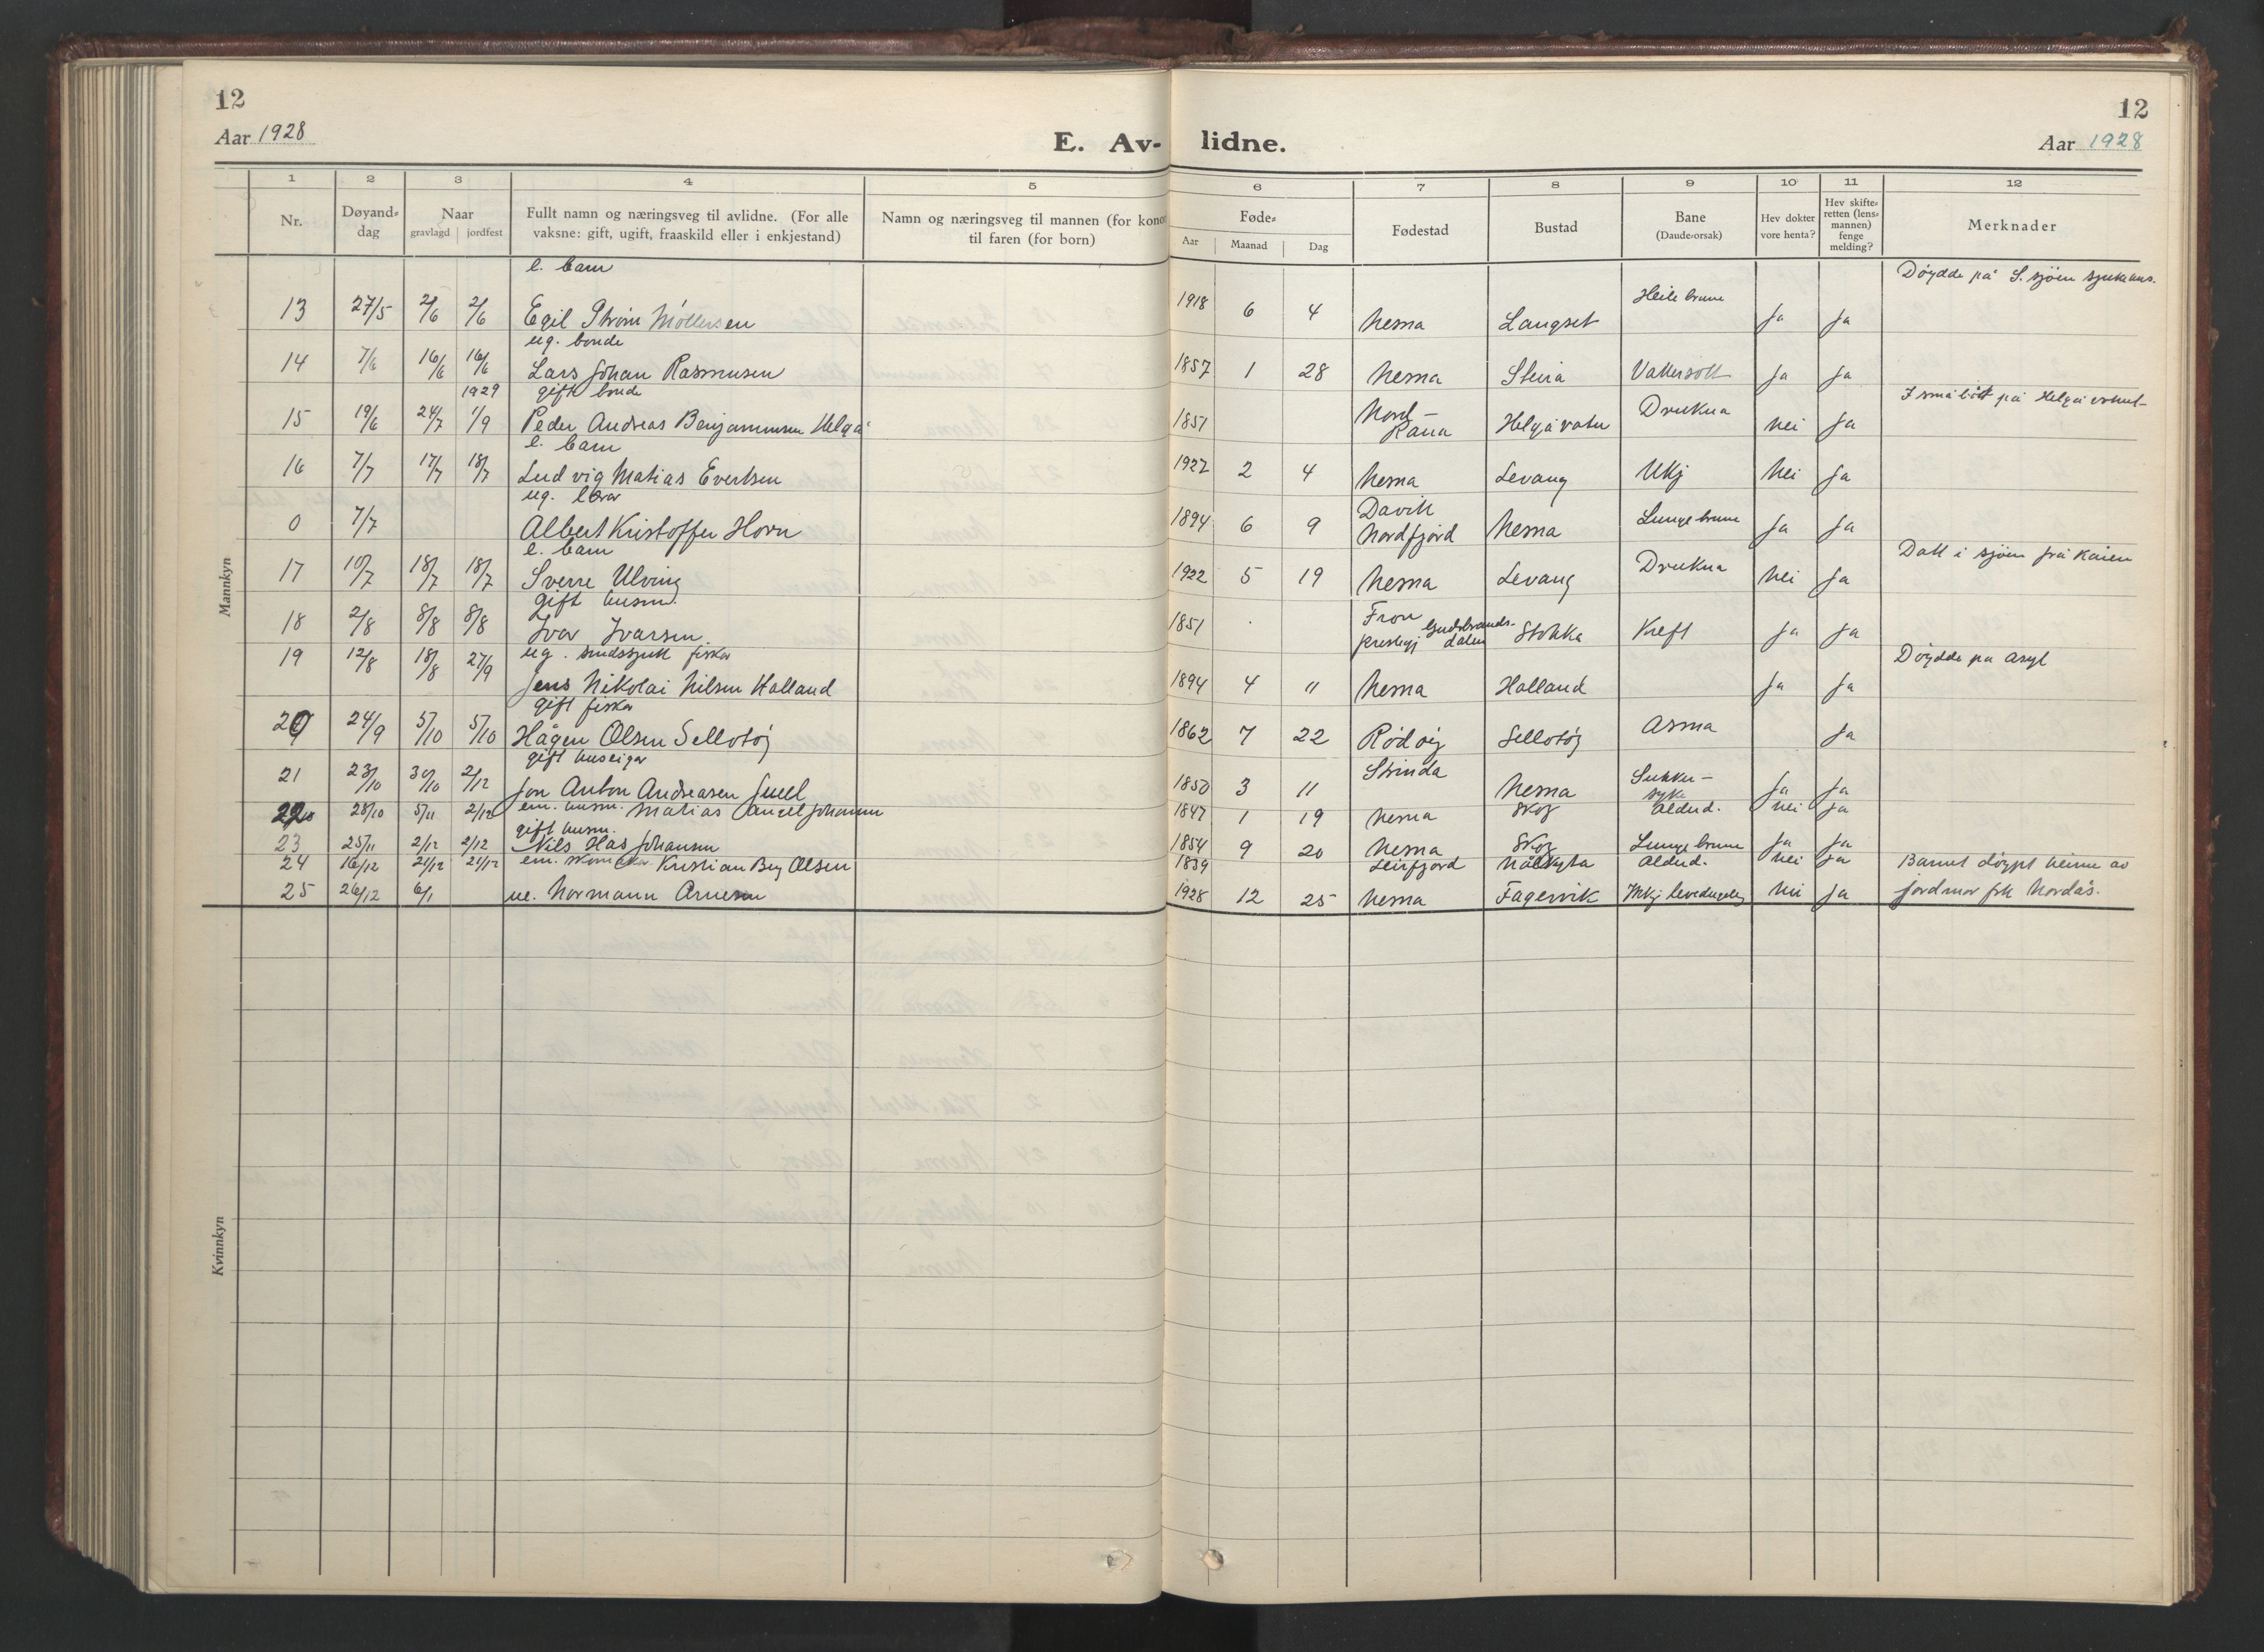 12
12
Aar 1928
E. Av- lidne.
Aar 1928
1 2 3 4 5 6 7 8 9 10 11 12
Nr. Døyand-dag Naar gravlagd jordfest Fullt namn og næringsveg til avlidne. (For alle vaksne: gift, ugift, fraaskild eller i enkjestand) Namn og næringsveg til mannen (for konor til faren (for born) Føde- Aar Maanad Dag Fødestad Bustad Bane (Daude-orsak) Hev dokter vore henta? Hev skifte-retten (lens-mannen) fenge melding? Merknader
Mannkyn
e. barn Døydde på S. sjøen sjukehus.
13 27/5 2/6 2/6 Egil Strøm Møllersen 1918 6 4 Nesna Langset ja ja
ug. bonde
14 7/6 16/6 16/6 Lars Johan Rasmusen 1857 1 28 Nesna Steira Vattersott ja ja
1929 gift bonde I småbåt på
15 19/6 24/7 1/9 Peder Andreas Benjaminsen Helgå 1851 Nord-Rana Helgåvatn Drukna nei ja
e. barn
16 7/7 17/7 18/7 Ludvig Matias Evertsen 1927 2 4 Nesna Levang Ukj nei ja
ug. lærar
0 7/7 Albert Kristoffer Horn 1894 6 9 Davik Nordfjord Nesna Lungebrune ja ja
e. barn Datt i sjøen frå kaien
17 10/7 18/7 18/7 Sverre Ulving 1922 5 19 Nesna Levang Drukna nei ja
gift husm.
18 2/8 8/8 8/8 Ivar Ivarsen. 1851 Fron prestegj Gudsbrands-dalen Stokka Kreft ja ja
ug. sindssjuk fiskar Døydde på asyl
19 12/8 18/8 27/9 Jens Nikolai Nilsen Halland 1894 4 11 Nesna Halland ja ja
gift fiskar
20 24/9 5/10 5/10 Hågen Olsen Selletøj 1862 7 22 Rødøy Selletøj Asma ja
gift huseigar
21 23/10 30/10 2/12 Jon Anton Andreasen Juell 1850 3 11 Strinda Nesna Sukker-syke ja ja
22 28/10 5/11 2/12 em. husm. Matias Johansen 1847 1 19 Nesna Skog Alderd. nei ja
gift husm.
23 25/11 2/12 2/12 Nils Has Johansen 1854 9 20 Nesna Skog Lungebrune ja ja
24 16/12 21/12 21/12 em. skomakar Kristian Benj Olsen 1839 Leirfjord Alderd. nei ja Barnet døypt heime av
25 26/12 6/1 ue. Normann Arnesen 1928 12 25 Nesna Fagervik Ikkj levedugeleg nei ja jordmor frk Nordås.
Kvinnkyn